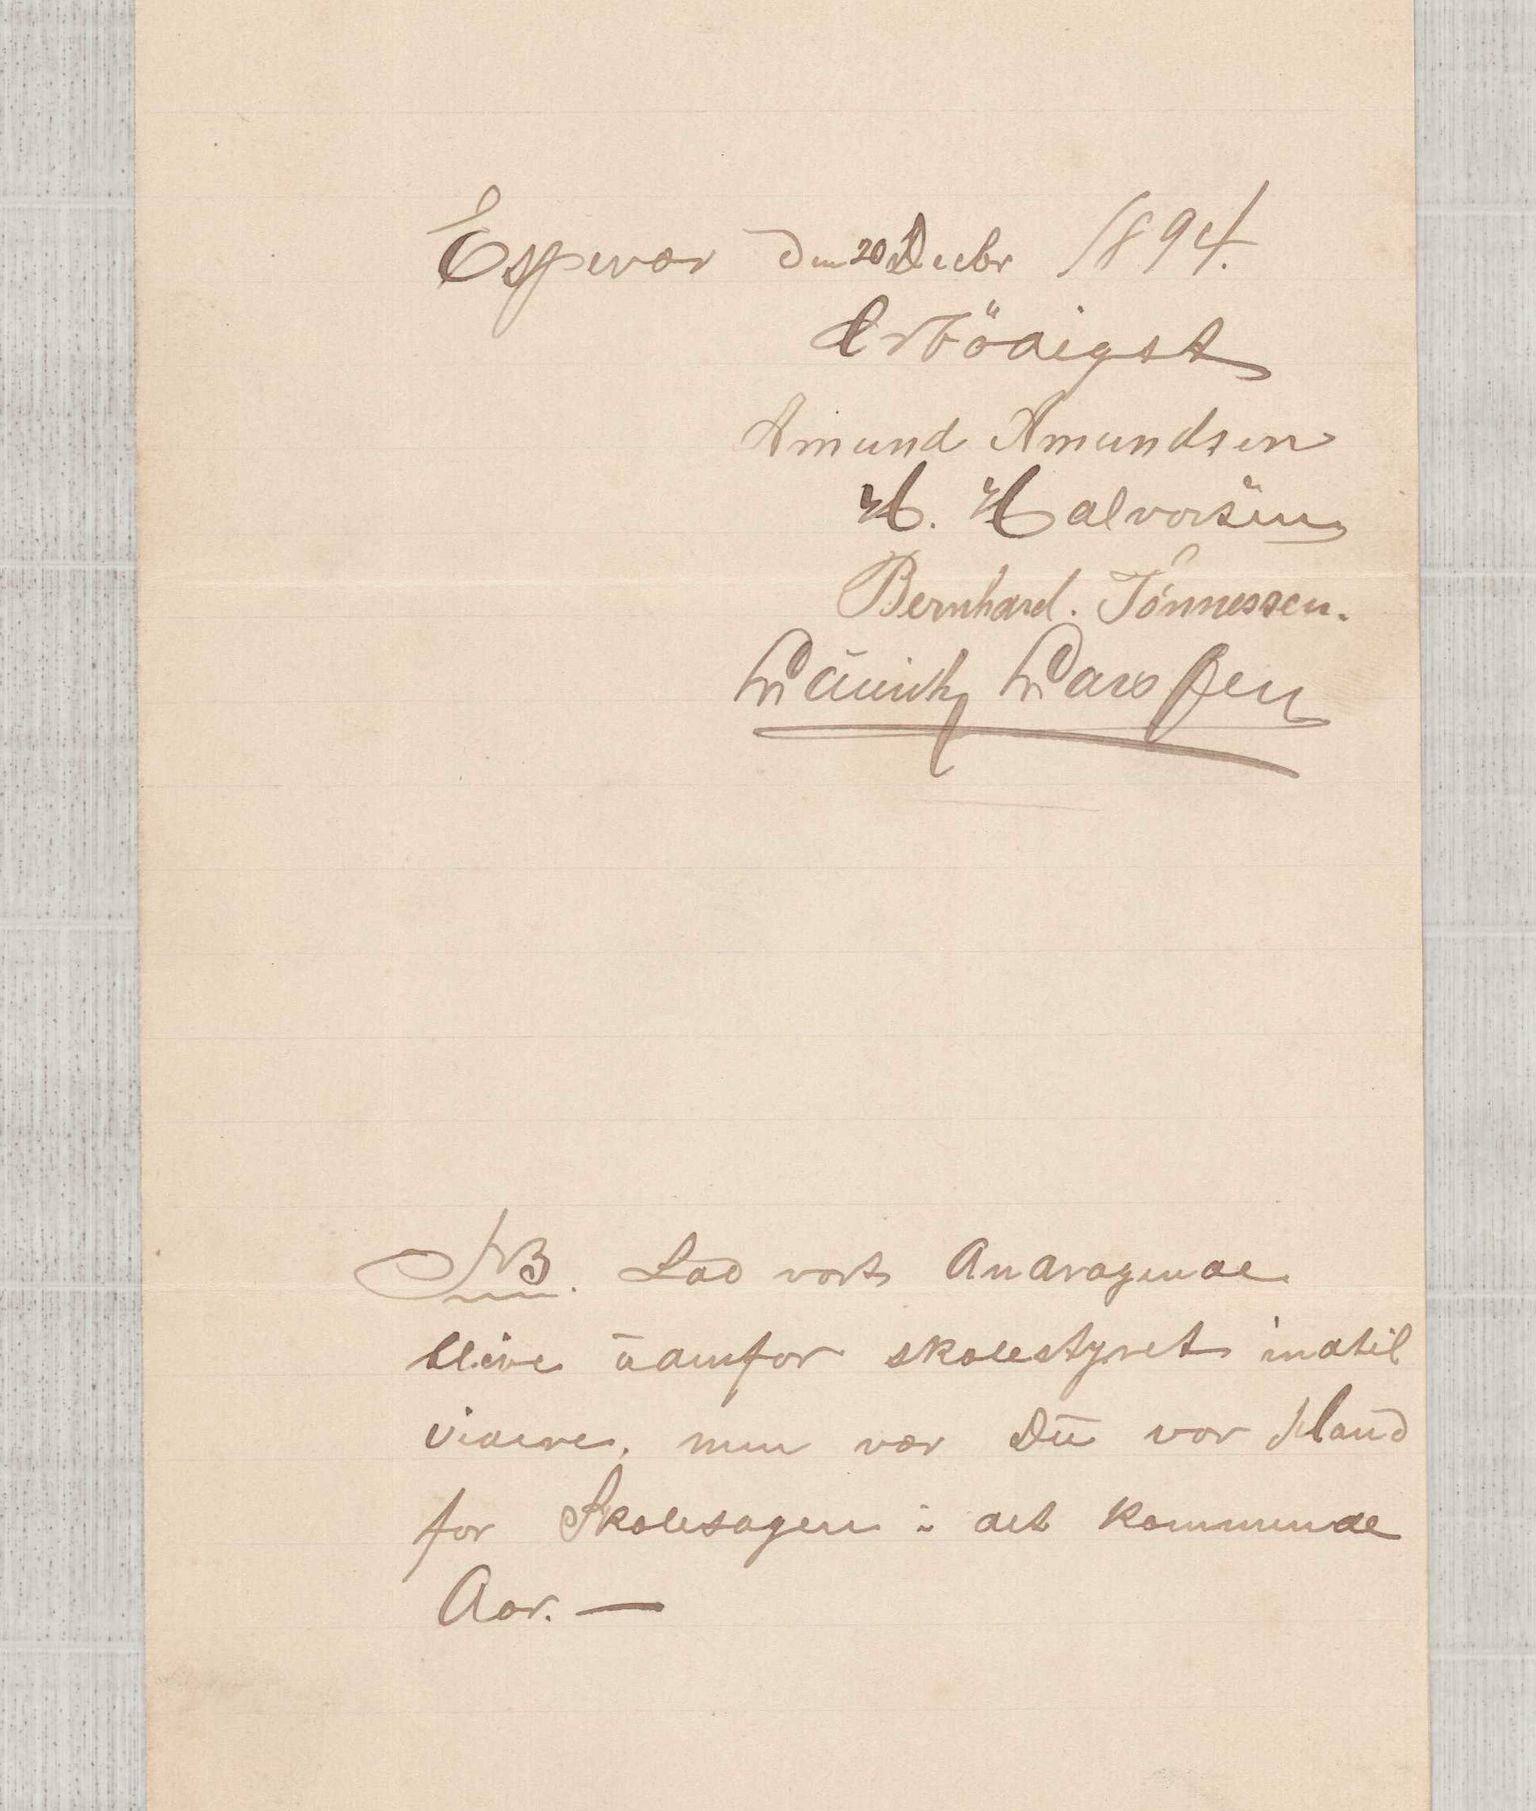 Espevær den 20 Decbr 1894.
Erbödigst
Amund Amundsen
H. H. Halvorsen
Bernhard. Tönnessen.
Larssen
NB. Lad vort Andragende
blive udenfor skolestyret indtil
videre, men vær Du vor Mand
for Skolesagen i det kommende
Aar. —